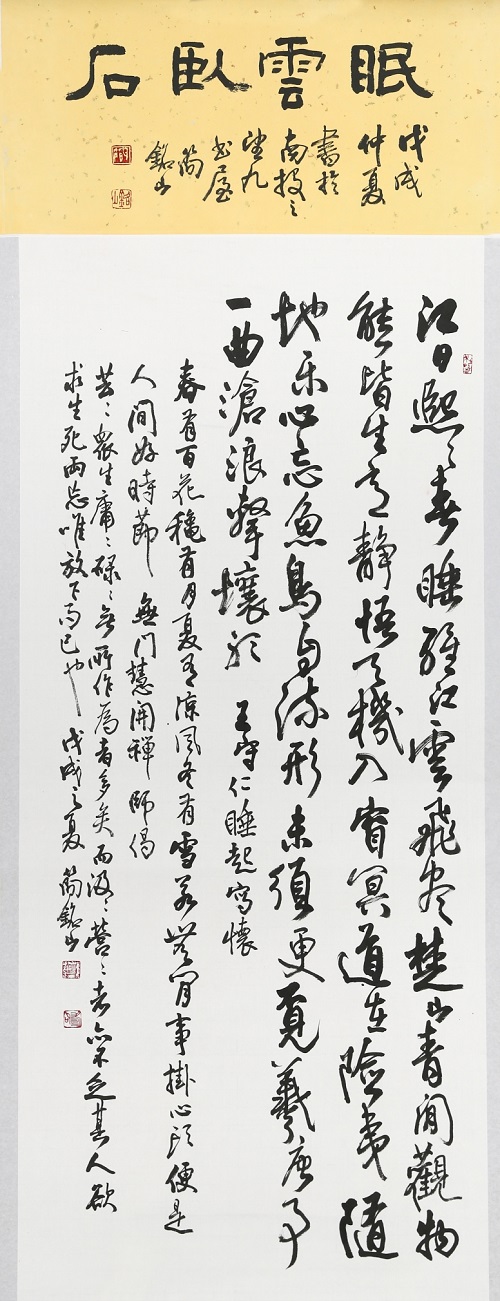 眠雲臥石
戊戌
仲夏
書於
南投之
望九
书屋
簡
銘山
江日熙々春睡醒江雲飛尽楚山青閒觀物
態皆生意靜悟天機入窅冥道在險夷隨
地樂心忘魚鳥自流形未須更覓羲唐事
一曲滄浪擊壤聽 王守仁睡起寫懷
春有百花穐有月夏有涼風冬有雪若無閒事掛心頭便是
人間好時節 無門慧開禪師偈
芸々眾生庸々碌々無所作為者多矣而汲々營々者亦不乏其人欲
求生死兩忘唯放下而已也 戊戌之夏 簡銘山